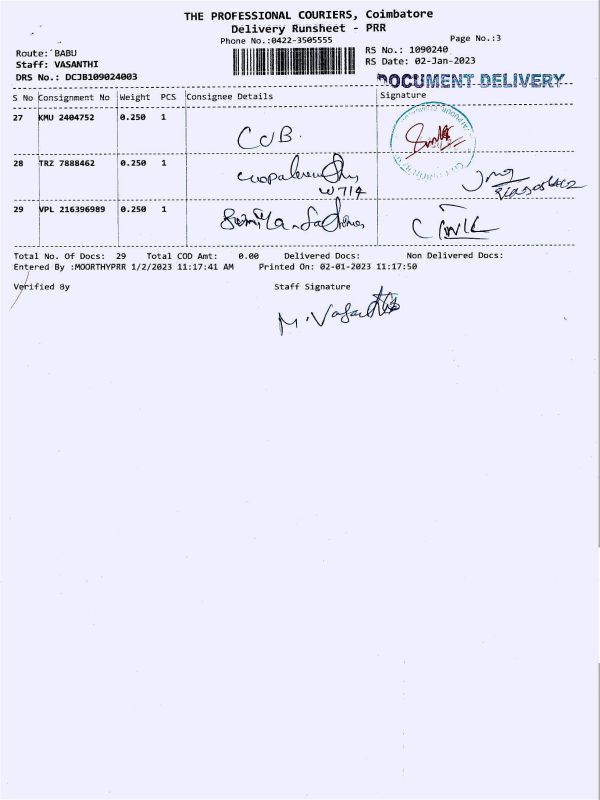 THE PROFESSIONAL COURIERS, Coimbatore
Delivery Runsheet - PRR
Phone No.:0422-3505555
Page No.:3
Route: BABU
RS No.: 1090240
Staff: VASANTHI
RS Date: 02-Jan-2023
DRS No.: DCJB109024003
DOCUMENT DELIVERY
S No Consignment No Weight PCS Consignee Details Signature
27 KMU 2404752 0.250 1 CUB.
28 TRZ 7888462 0.250 1
W714
29 VPL 216396989 0.250 1
Total No. Of Docs: 29 Total COD Amt: 0.00 Delivered Docs: Non Delivered Docs:
Entered By :MOORTHYPRR 1/2/2023 11:17:41 AM Printed On: 02-01-2023 11:17:50
Verified By Staff Signature
M. Vasanthi